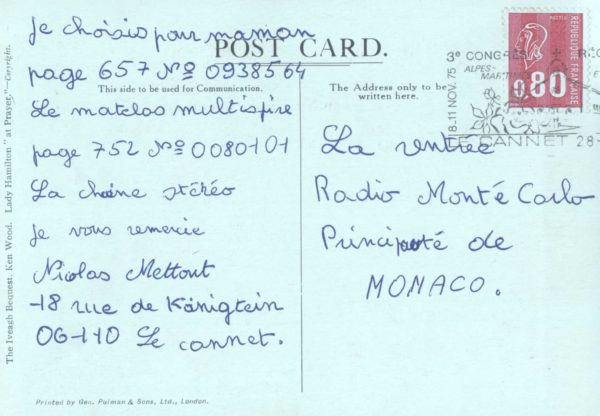 Je choisis pour maman
POST CARD.
page 657 Nº 0938564
This side to be used for Communication.
Le matelas multispire
page 752 Nº 0080101
La chaine stéréo
Je vous remercie
Nicolas Mettout
18 rue de Königtein
06110 Le cannet.
The Address only to be
written here.
La rentrée
Radio Monté Carlo
Principoté de
MONACO.
REPUBLIQUE FRANÇAISE
0,80
3e CONGRES
ALPES-
MARITIMES
18-11 NOV. 75
LE CANNET 28-
The Iveagh Bequest, Ken Wood. Lady Hamilton "at Prayer."—Copyright.
Printed by Geo. Pulman & Sons, Ltd., London.